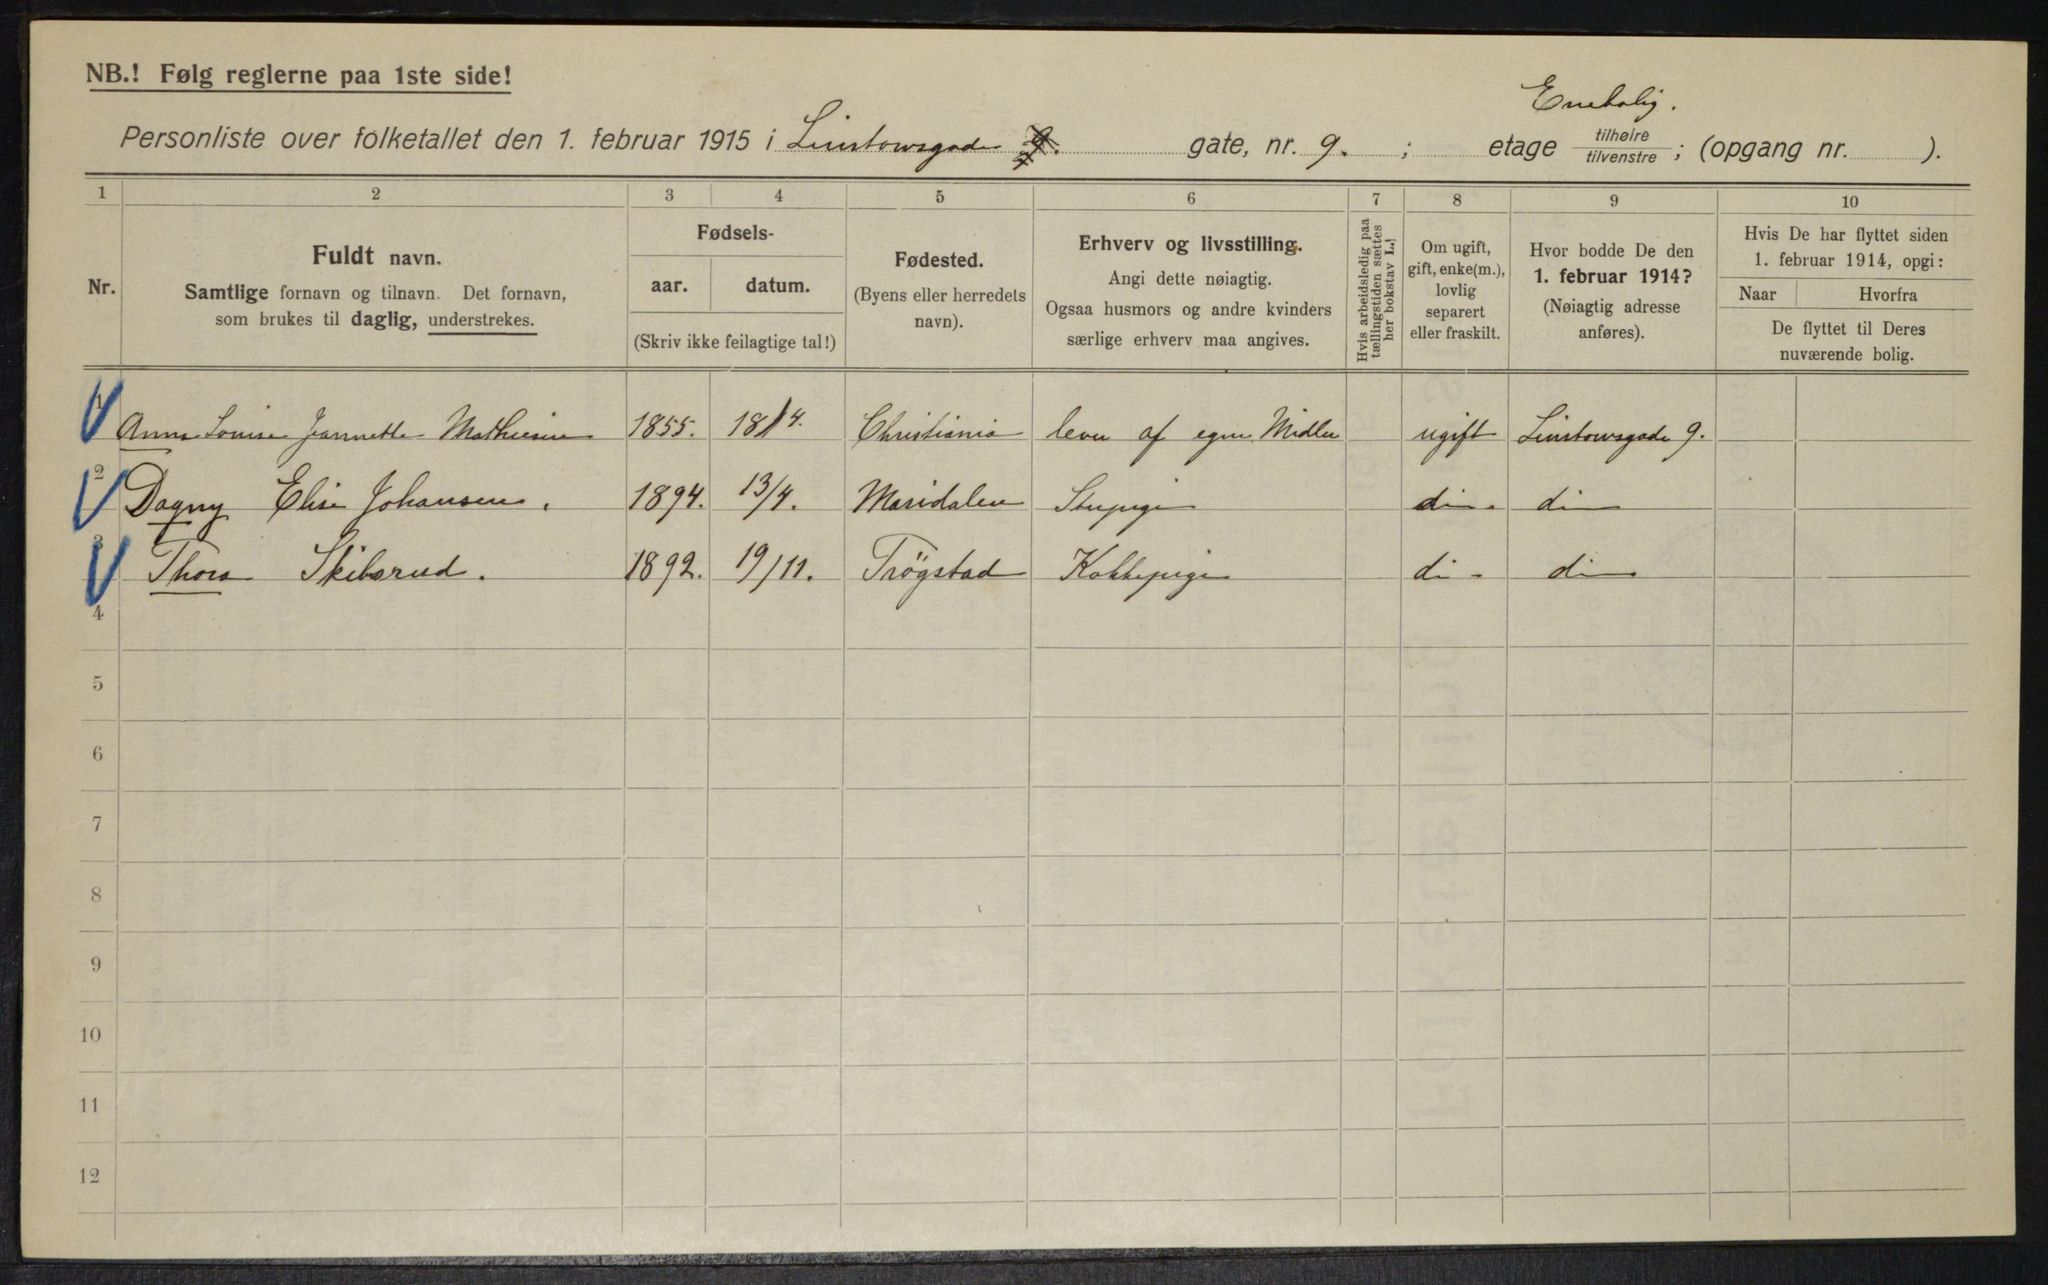 NB.! Følg reglerne paa 1ste side!
Enebolig.
Personliste over folketallet den 1. februar 1915 i Linstowsgade gate, nr. 9. ; etage tilhøire/tilvenstre ; (opgang nr. ).
1 2 3 4 5 6 7 8 9 10
Nr.
Fuldt navn.
Samtlige fornavn og tilnavn. Det fornavn,
som brukes til daglig, understrekes.
Fødsels-
aar. datum.
(Skriv ikke feilagtige tal!)
Fødested.
(Byens eller herredets
navn).
Erhverv og livsstilling.
Angi dette nøiagtig.
Ogsaa husmors og andre kvinders
særlige erhverv maa angives.
Hvis arbeidsledig paa
tællingstiden sættes
her bokstav L.!
Om ugift,
gift, enke(m.),
lovlig
separert
eller fraskilt.
Hvor bodde De den
1. februar 1914?
(Nøiagtig adresse
anføres).
Hvis De har flyttet siden
1. februar 1914, opgi:
Naar Hvorfra
De flyttet til Deres
nuværende bolig.
1 Anna Louise Jeannette Mathiesen 1855. 18/4. Christiania lever af egne Midler ugift Linstowsgade 9.
2 Dagny Elise Johansen. 1894. 13/4. Maridalen Stupige do. do
3 Thora Skibsrud. 1892. 19/11. Trögstad Kokkepige do. do
4
5
6
7
8
9
10
11
12